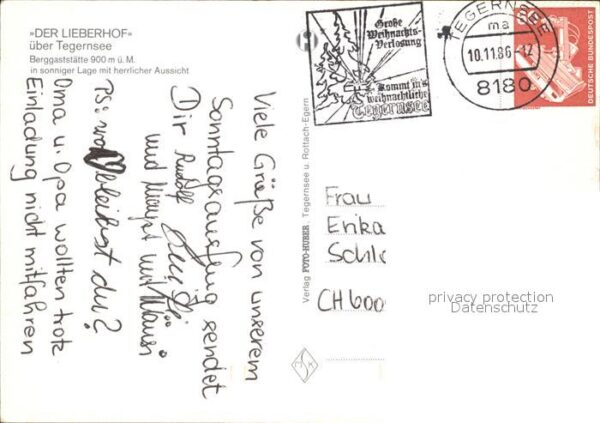 »DER LIEBERHOF«
über Tegernsee
Berggaststätte 900 m ü. M.
in sonniger Lage mit herrlicher Aussicht
Große
Weihnachts-
Verlosung
Kommt in's
weihnachtliche
Tegernsee
TEGERNSEE
ma
10.11.86-12
8180
DEUTSCHE BUNDESPOST
Viele Grüße von unserem
Sonntagsausflug sendet
Dir Rudolf
und und Mausi
PS: wo bleibst du?
Oma u. Opa wollten trotz
Einladung nicht mitfahren
Verlag FOTO-HUBER Tegernsee u. Rottach-Egern
Frau
Erika
Schl
CH 600
privacy protection
Datenschutz